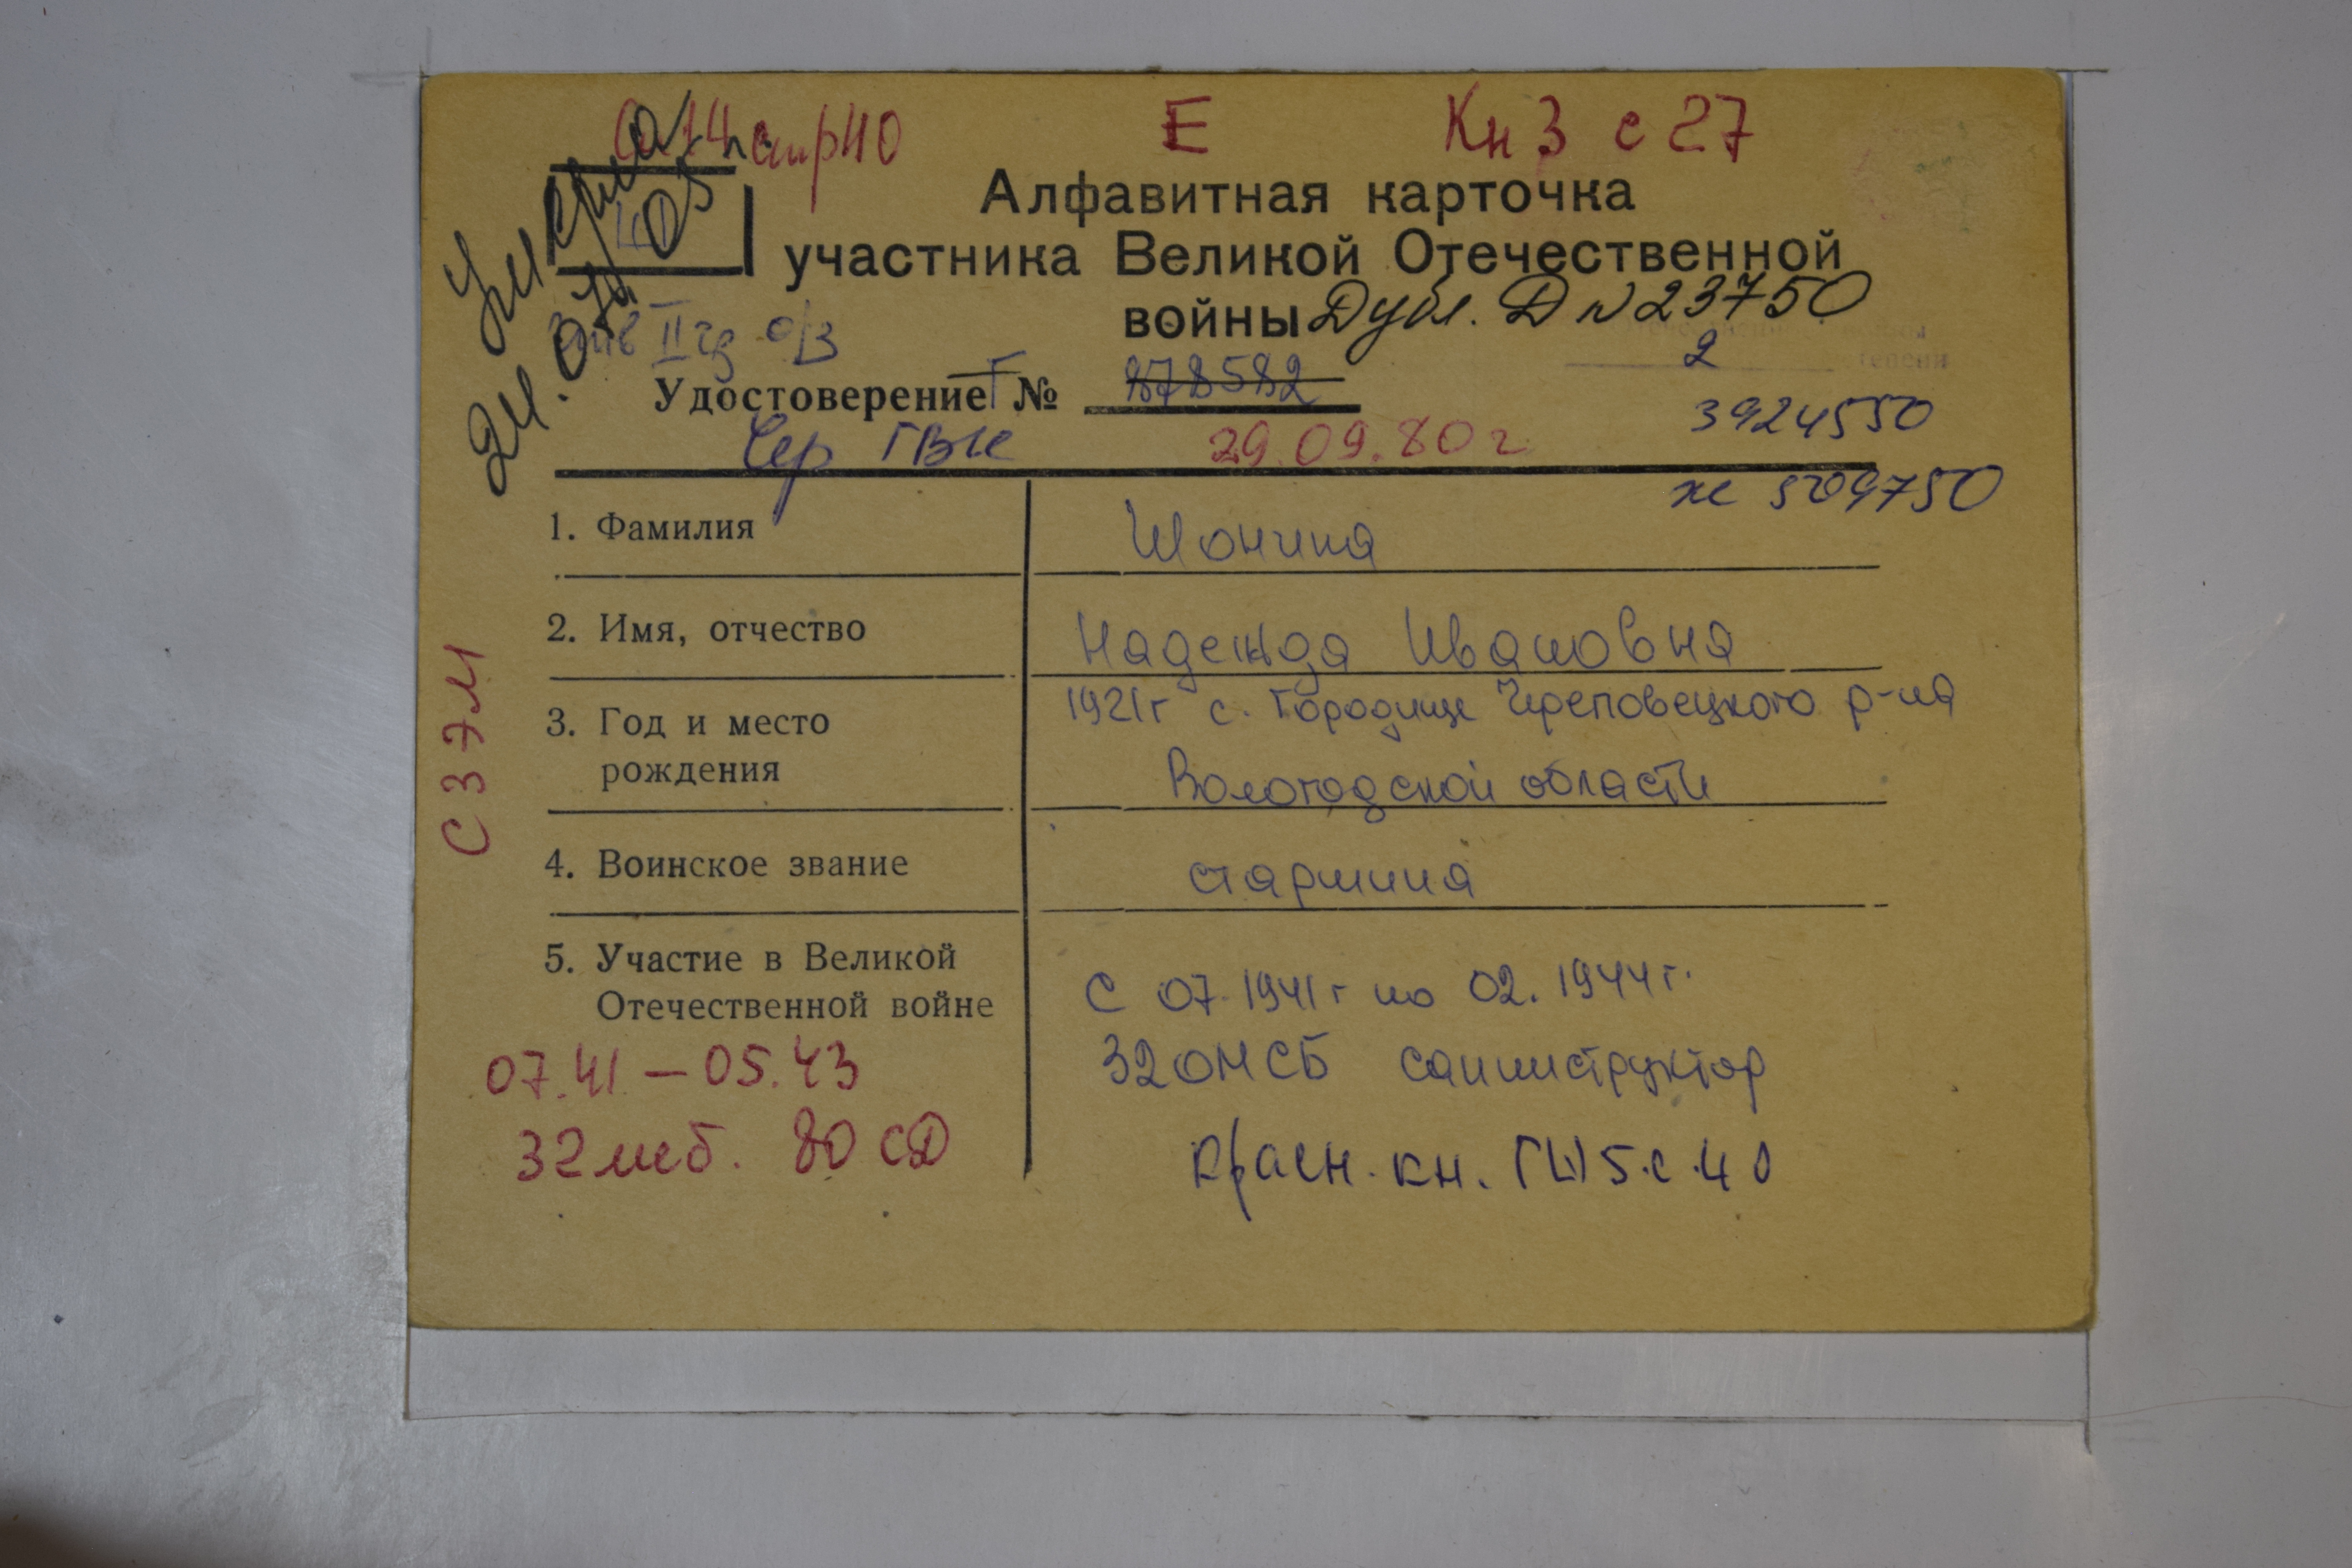 стр 40 Е Кн 3 с 27
Алфавитная карточка
участника Великой Отечественной
войны Дубл. Д № 23750
Умерла
24.07.05
инв II гр о/з
2
степени
Удостоверение Г № 878582
3924550
Чер ГВК 29.09.80 г
же 509750
1. Фамилия Шонина
2. Имя, отчество Надежда Ивановна
3. Год и место рождения 1921г с. Городище Череповецкого р-на
Вологодской области
4. Воинское звание старшина
5. Участие в Великой
Отечественной войне
С 07.1941г по 02.1944г.
32 ОМСБ санинструктор
Красн. кн. ГШ 5.с.40
07.41 – 05.43
32 мсб. 80 СД
СЗЭМ